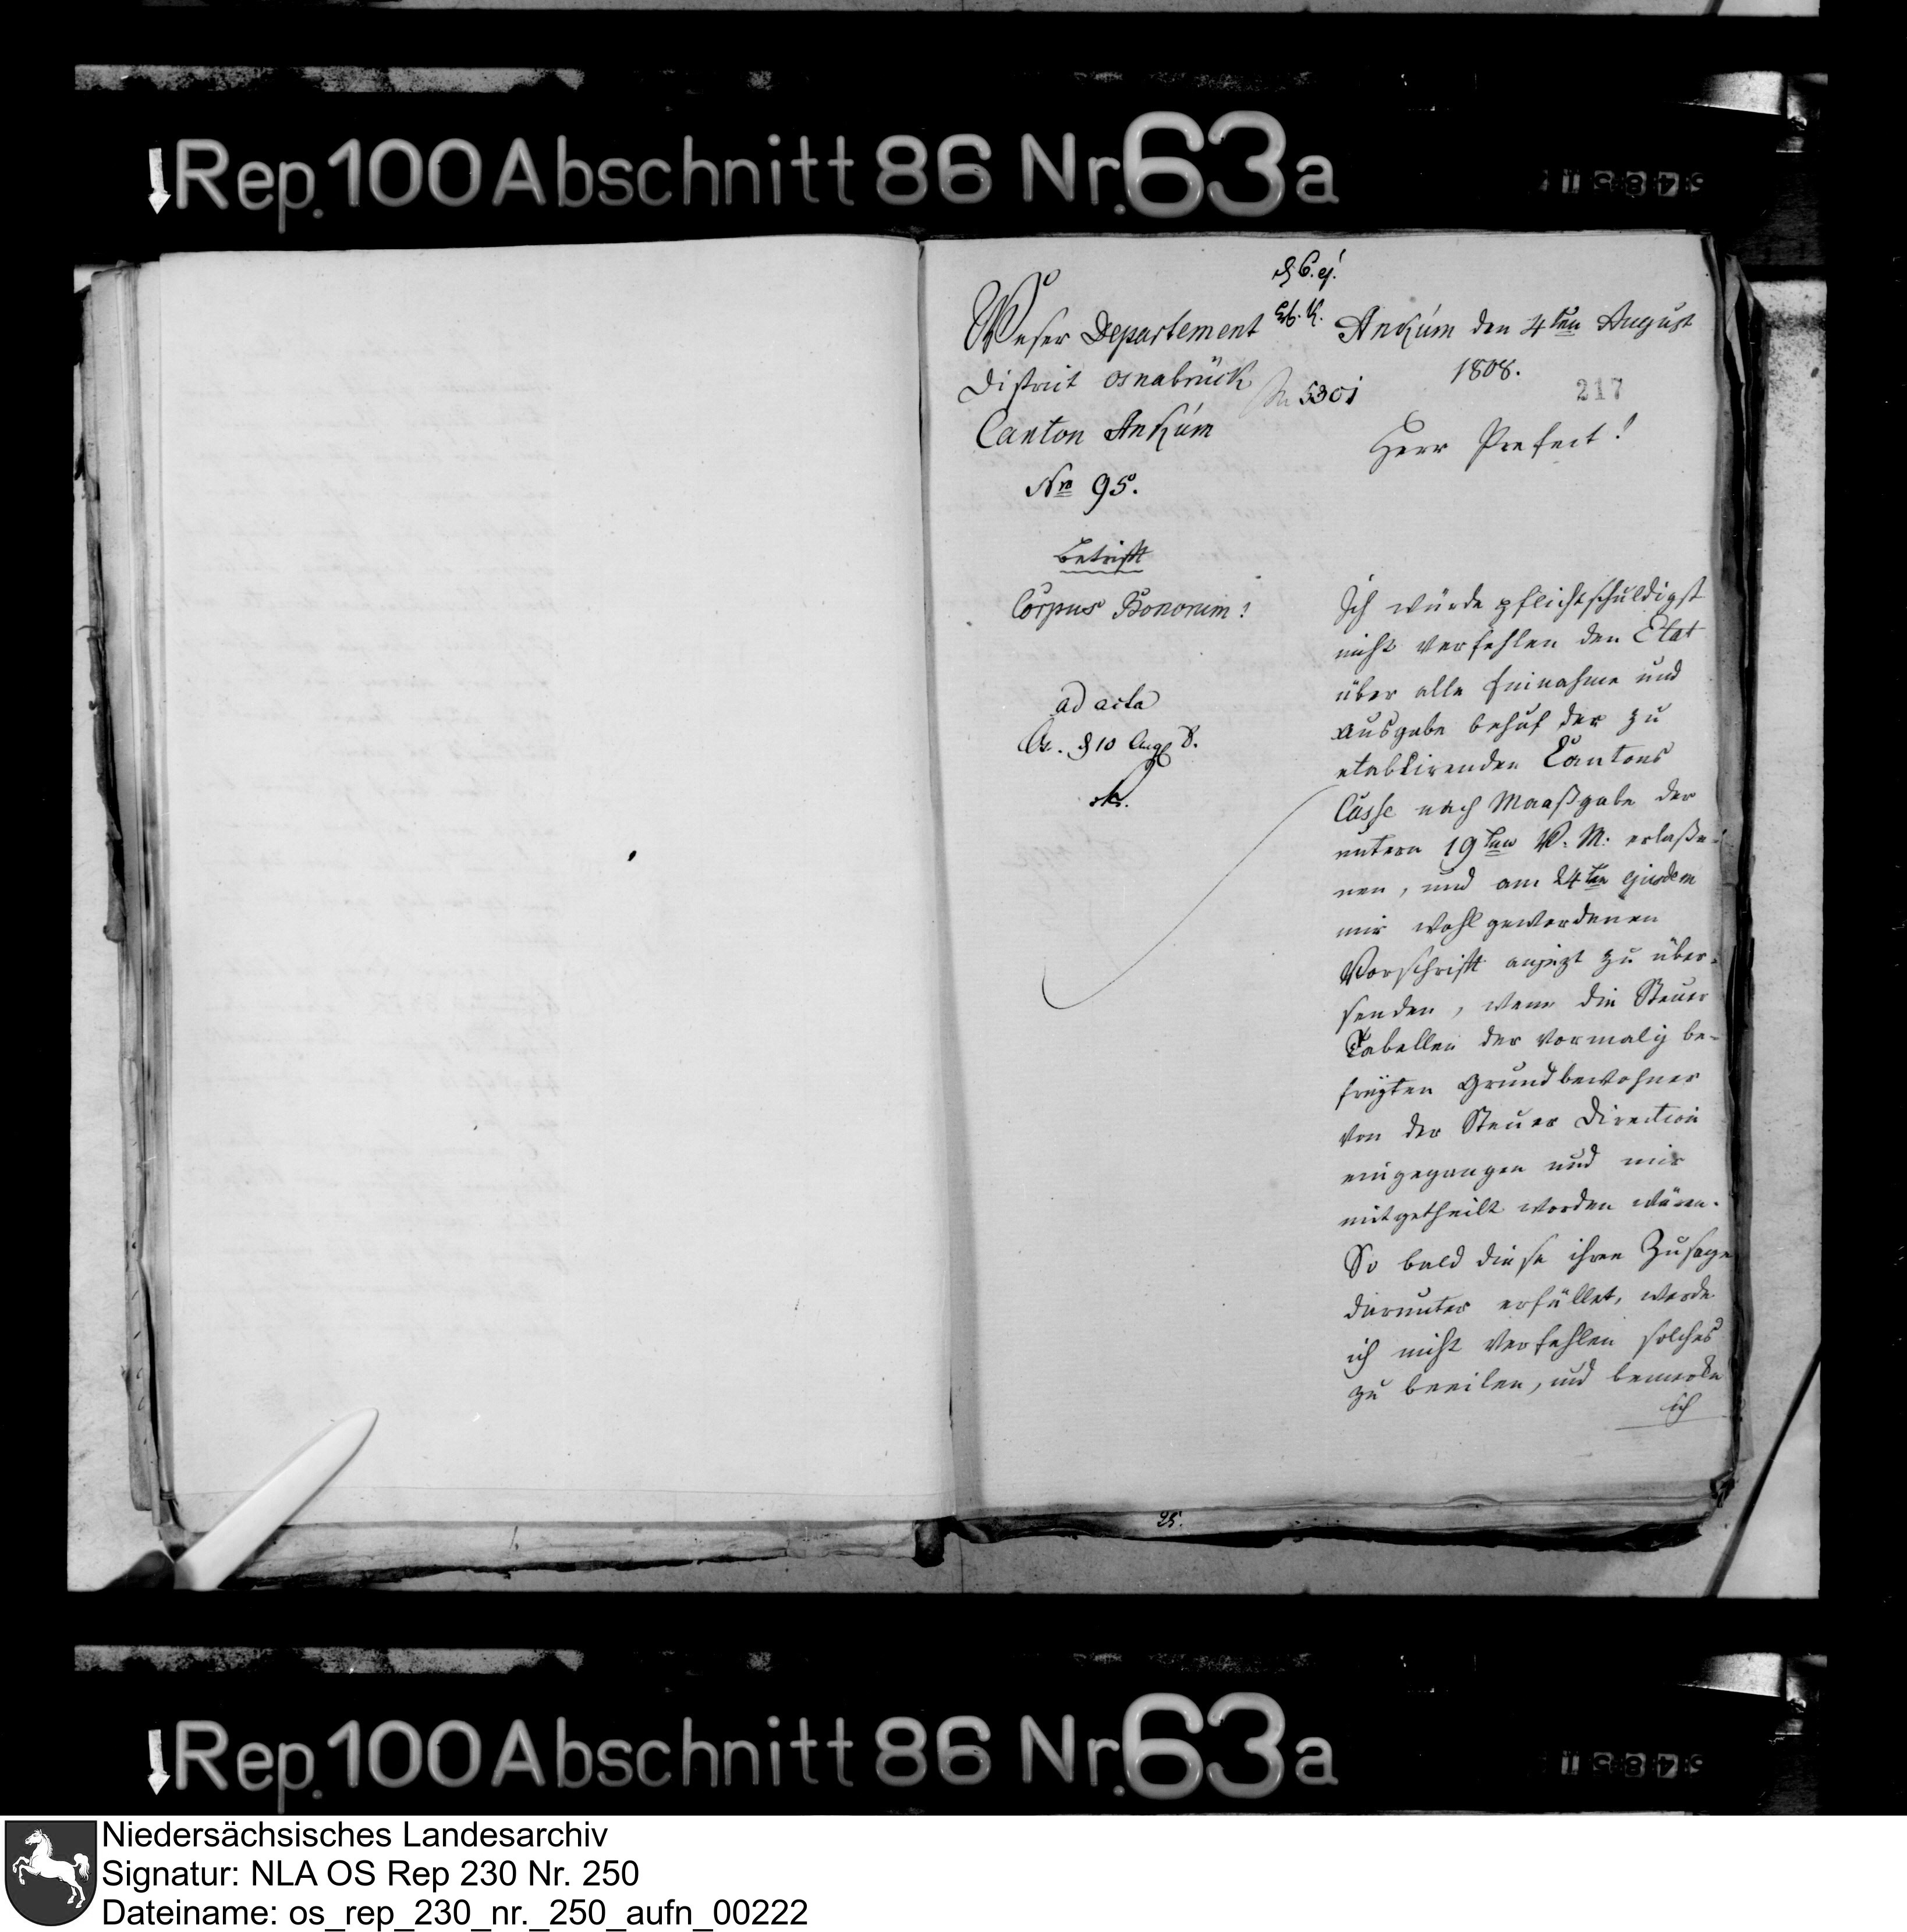 Rep. 100 Abschnitt 86 Nr. 63a
d 6. ej.
Weser Departement
District Osnabrück
Canton Ankum
Nro 95.
Betrifft
Corpus Bonorum!
ad acta
Os. d 10 Aug 8.
5301
Ankum den 4ten August
1808.
217
Herr Prefect!
Ich würde pflichtschuldigst
nicht verfehlen den Etat
über alle Einnahme und
Ausgabe behuf der zu
etablirenden Cantons
Casse nach Maaßgabe der
untern 19ten V. M. erlaße-
nen, und am 24ten ejusdem
mir wohl gewordenen
Vorschrift anjezt zu über-
senden, wenn die Steuer
Tabellen der vormalig be-
freyten Grundbewohner
von der Steuer Direction
eingegangen und mir
mitgetheilt worden wären.
So bald diese ihre Zusage
darunter erfüllet, werde
ich nicht verfehlen solches
zu beeilen, und bemerke
ich
25.
Rep. 100 Abschnitt 86 Nr. 63a
Niedersächsisches Landesarchiv
Signatur: NLA OS Rep 230 Nr. 250
Dateiname: os_rep_230_nr._250_aufn_00222